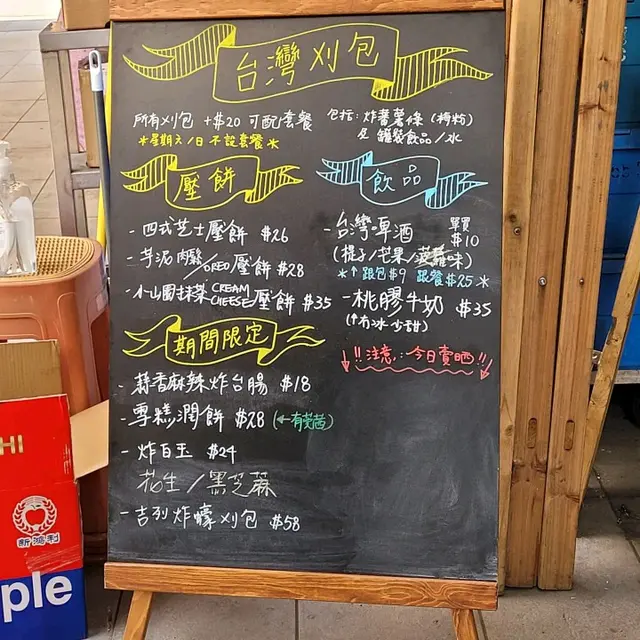 台灣刈包
所有刈包 +$20 可配套餐
包括: 炸蕃薯條 (梅粉)
及 罐裝飲品/水
*星期六/日 不設套餐*
壓餅
- 四式芝士壓餅 $26
- 芋泥肉鬆/OREO壓餅 $28
- 小山園抹茶CREAM CHEESE壓餅 $35
飲品
- 台灣啤酒 單買 $10
(提子/芒果/菠蘿味)
*↑ 跟包$9 跟餐$25*
- 桃膠牛奶 $35
(有冰少甜)
!!注意: 今日賣晒!!
期間限定
- 蒜香麻辣炸台腸 $18
- 雪糕潤餅 $28 (←有芫茜)
- 炸白玉 $24
花生/黑芝蔴
- 吉列炸蠔刈包 $58
HI
新鴻利
ple